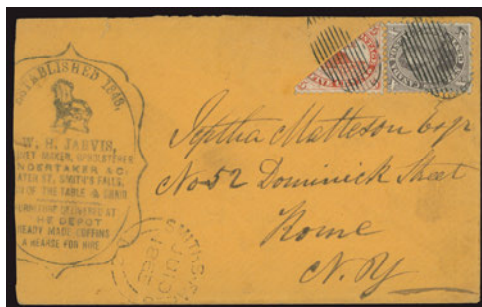 ESTABLISHED 1848,
W. H. JARVIS,
MAKER, UPHOLSTERER
UNDERTAKER &C.
ST, SMITH'S FALLS,
OF THE TABLE & CHAIR
FURNITURE DELIVERED AT
THE DEPOT
READY MADE COFFINS
A HEARSE FOR HIRE
Jeptha Matteson Esqr
No 52 Dominick Street
Rome
N. Y
SMITHS